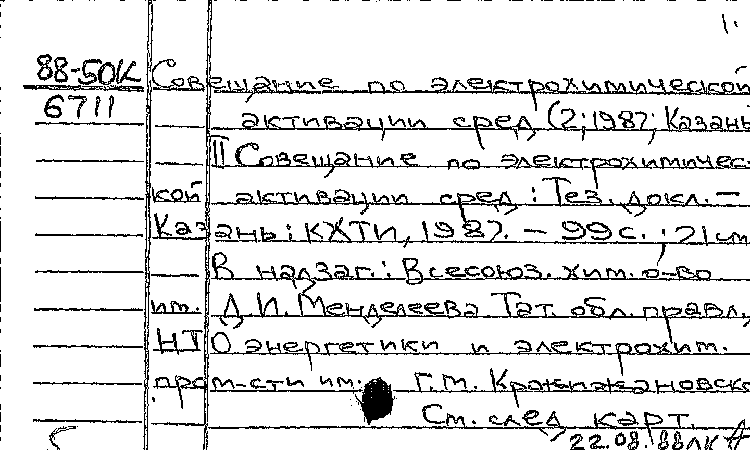 1.
88-50К Совещание по электрохимической
6711 активации сред (2; 1987; Казань
II Совещание по электрохимичес-
кой активации сред : Тез. докл. —
Казань : КХТИ, 1987. — 99 с. ; 21 см
В надзаг. : Всесоюз. хим. о-во
им. Д. И. Менделеева Тат. обл. правл.,
НТО энергетики и электрохим.
пром-сти им. Г. М. Кржижановско
См. след. карт.
22.08.88